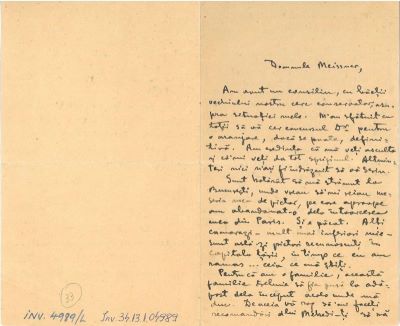 Domnule Meissner,
Am avut un consiliu, cu toții
vechiului nostru cerc conservator, asu-
pra situației mele. M'au sfătuit cu
toții să vă cer concursul Dv pentru
o aranjare, dacă se poate, defini-
tivă. Am credința că mă veți asculta
și că-mi veți da tot sprijinul. Altmin-
teri nici n'ași fi îndrăznit să vă scriu.
Sunt hotărât să mă strămut la
București, unde vreau să-mi reiau me-
seria mea de pictor, pe care aproape
am abandonat-o dela întoarcerea
mea din Paris. Și e păcat. Alți
camarazi - mult mai inferiori mie -
sunt astăzi pictori recunoscuți în
capitala țării, în timp ce eu am
rămas ... ceea ce mă știți.
Pentru că am o familie, această
familie trebuie să fie pusă la adă-
post dela început acolo unde mă
duc. De aceea vă rog să-mi faceți
recomandări alui Mehedinți să mă
33
inv. 4989/L
Inv. 34.13.1.04989